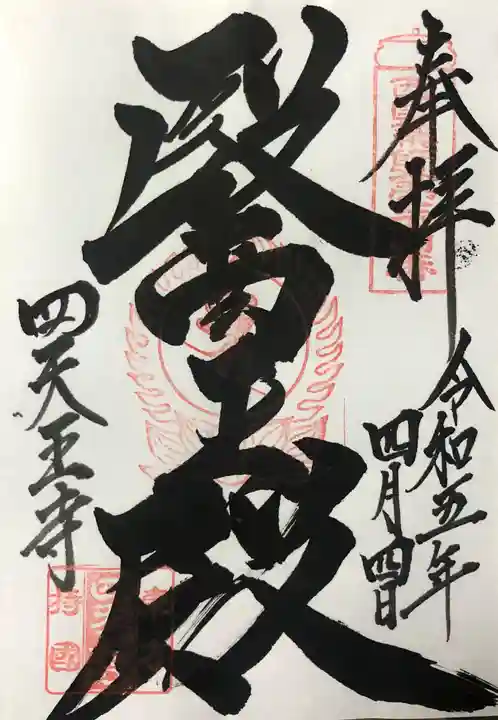 奉拝
令和五年
四月四日
醫王殿
四天王寺
持國